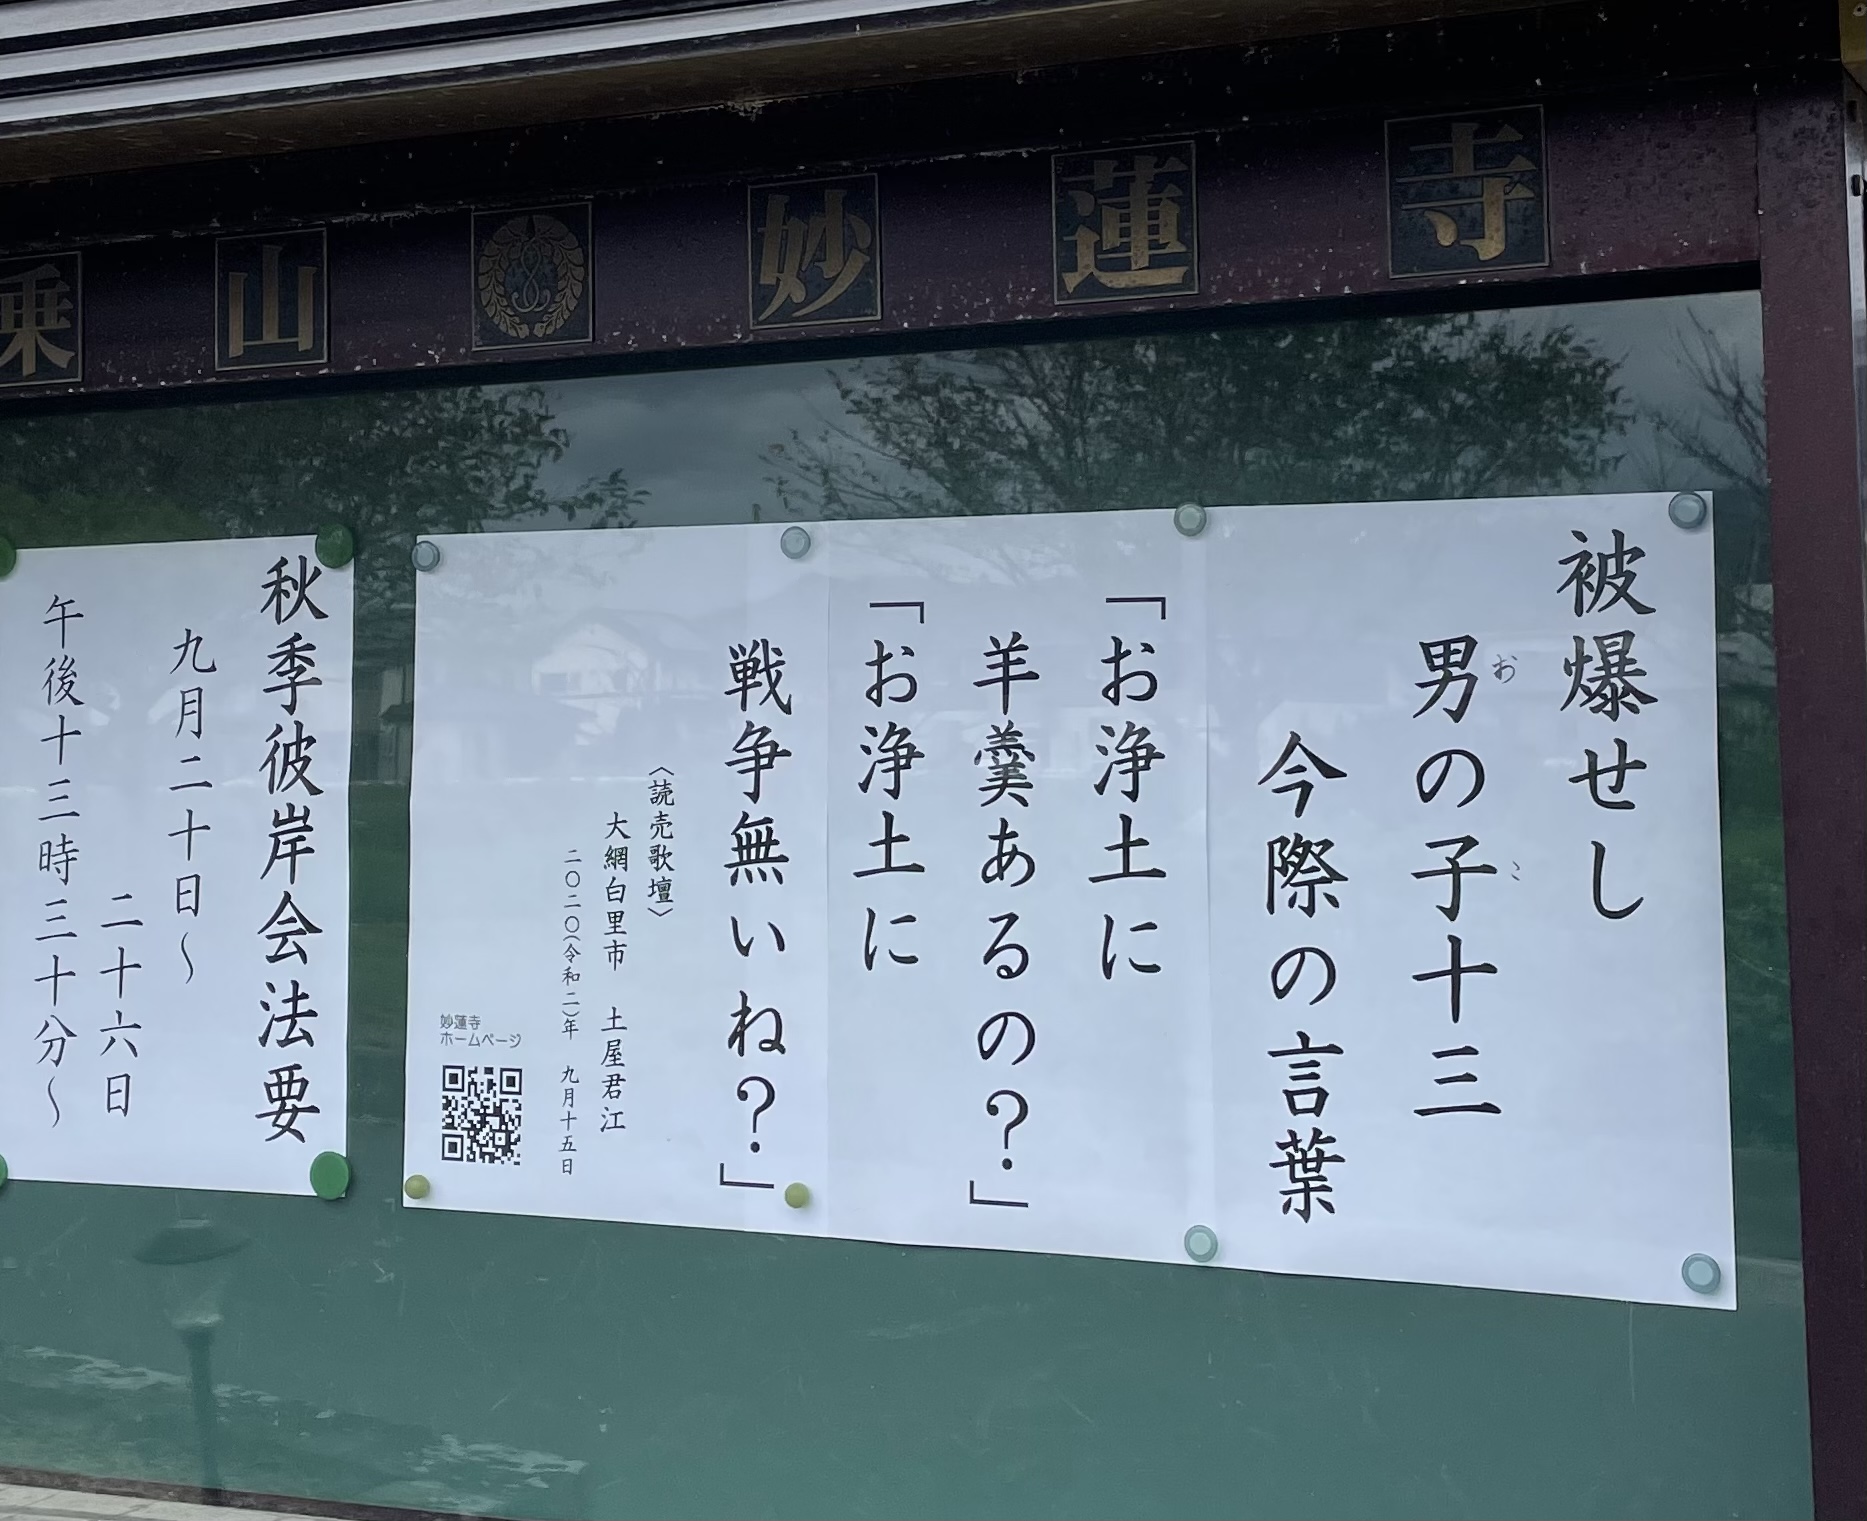 乗山 妙蓮寺
被爆せし
男の子十三
おこ
今際の言葉
「お浄土に
羊羹あるの？」
「お浄土に
戦争無いね？」
〈読売歌壇〉
大網白里市 土屋君江
二〇二〇(令和二)年 九月十五日
妙蓮寺
ホームページ
秋季彼岸会法要
九月二十日～
二十六日
午後十三時三十分～